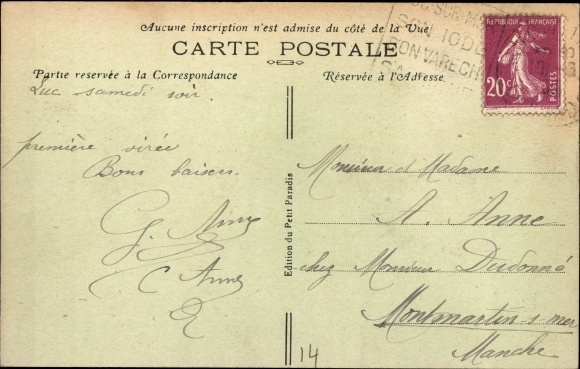 Aucune inscription n'est admise du côté de la Vue
CARTE POSTALE
Partie reservée à la Correspondance
Réservée à l'Adresse
SON IODE
SON VARECH
REPUBLIQUE FRANÇAISE
20c
POSTES
Luc samedi soir.
première virée
Bons baisers.
G. Anne
C Anne
Edition du Petit Paradis
Monsieur et Madame
A. Anne
chez Monsieur Dudonné
Montmartin-s-mer
Manche
14